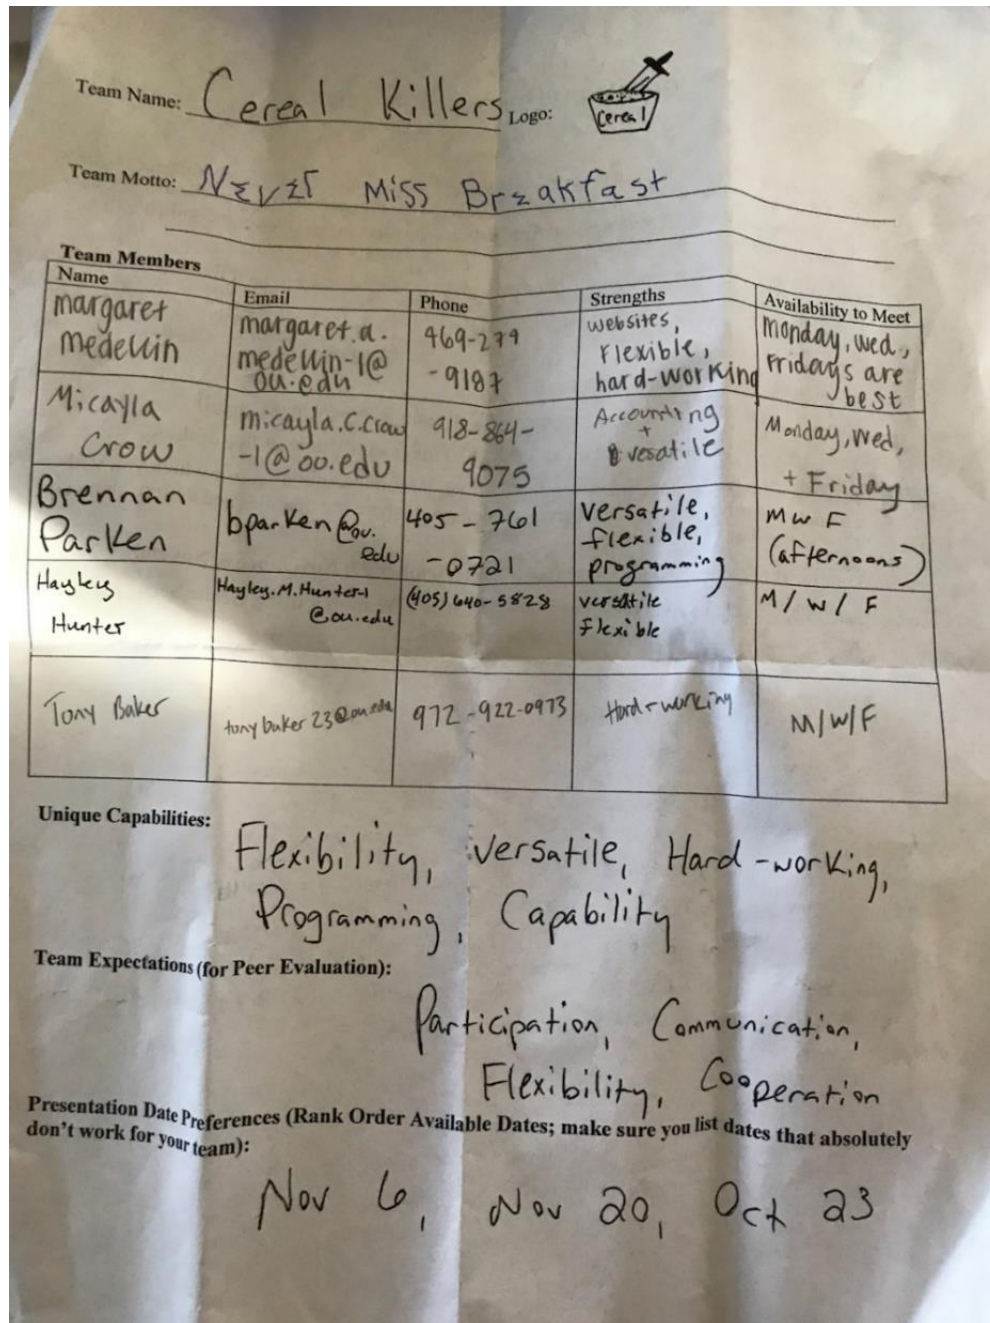 Team Name: Cereal Killers Logo: Cereal
Team Motto: Never Miss Breakfast
Team Members
Name Email Phone Strengths Availability to Meet
margaret medellin margaret.a. medellin-1@ou.edu 469-279-9187 websites, Flexible, hard-working Monday, wed., Fridays are best
Micayla Crow micayla.c.crow-1@ou.edu 918-864-9075 Accounting + versatile Monday, wed, + Friday
Brennan Parken bparken@ou.edu 405-761-0721 versatile, flexible, programming MW F (afternoons)
Hayley Hunter Hayley.M.Hunter-1@ou.edu (405) 640-5828 versatile flexible M/W/F
Tony Baker tony baker 23@ou.edu 972-922-0973 Hard-working M/W/F
Unique Capabilities:
Flexibility, versatile, Hard-working,
Programming, Capability
Team Expectations (for Peer Evaluation):
Participation, Communication,
Flexibility, Cooperation
Presentation Date Preferences (Rank Order Available Dates; make sure you list dates that absolutely
don't work for your team):
Nov 6, Nov 20, Oct 23